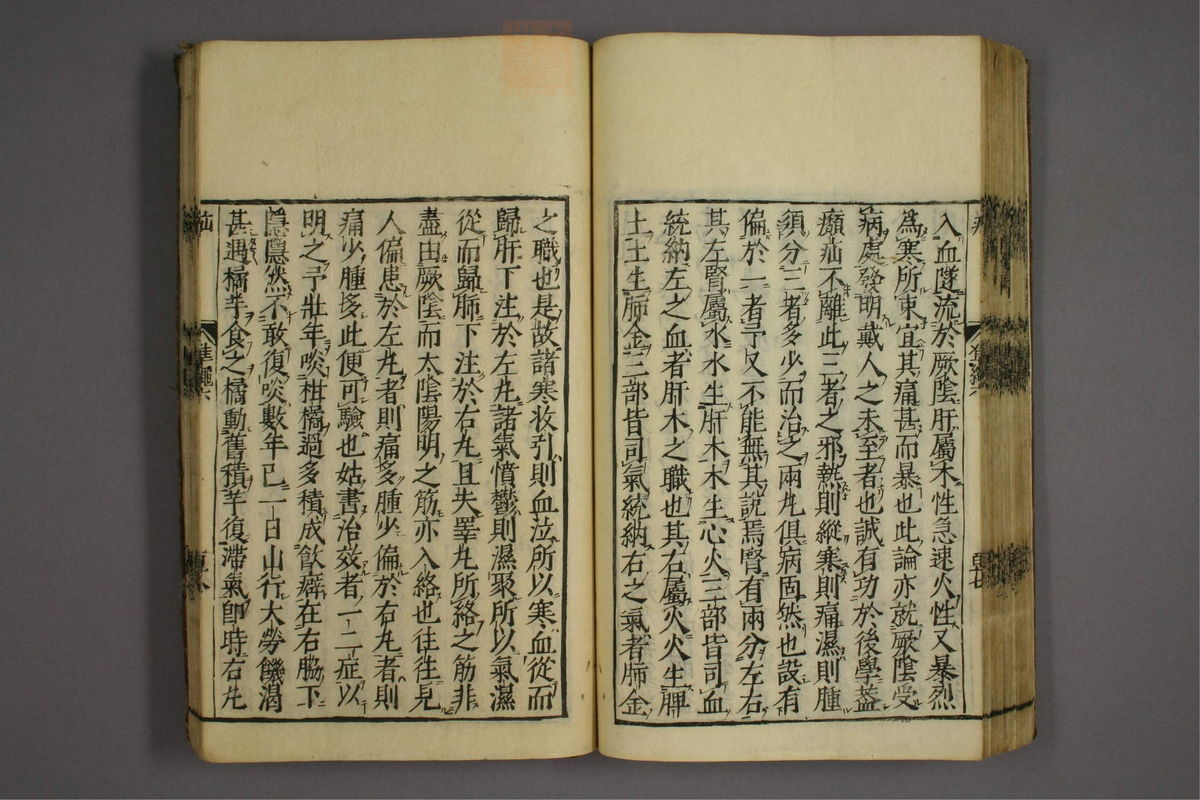 入血隧流於厥陰肝屬木性急速火性又暴烈
爲寒所束宜其痛甚而暴也此論亦就厥陰受
病處發明戴人之未至者也誠有功於後學葢
癩疝不離此三者之邪熱則縱寒則痛濕則腫
須分三者多少而治之兩丸俱病固然也設有
偏於一者予又不能無其說焉腎有兩分左右
其左腎屬水水生肝木木生心火三部皆司血
統納左之血者肝木之職也其右屬火火生脾
土土生肺金三部皆司氣統納右之氣者肺金
之職也是故諸寒收引則血泣所以寒血從而
歸肝下注於左丸諸氣憤鬱則濕聚所以氣濕
從而歸肺下注於右丸且夫睪丸所絡之筋非
盡由厥陰而太陰陽明之筋亦入絡也往往見
人偏患於左丸者則痛多腫少偏於右丸者則
痛少腫多此便可驗也姑書治效者一二症以
明之予壯年啖柑橘過多積成飲癖在右脇下
隱隱然不敢復啖數年已一日山行大勞饑渴
甚遇橘芋食之橘動舊積芋復滯氣卽時右丸
疝